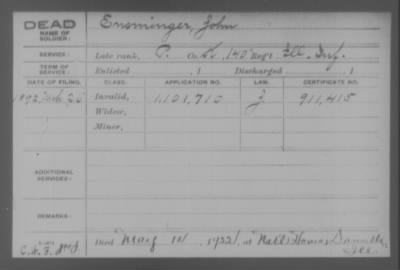 DEAD Ensminger, John
NAME OF SOLDIER:
SERVICE: Late rank, P. Co. 140 Reg't Ill. Inf.
TERM OF SERVICE: Enlisted , 1 Discharged , 1
DATE OF FILING. CLASS. APPLICATION NO. LAW. CERTIFICATE NO.
1892 Mch 25 Invalid, 1,101,710 J 911,415
Widow,
Minor,
ADDITIONAL SERVICES:
REMARKS:
Died May 1922, at Nat'l Home, Danville, Ill.